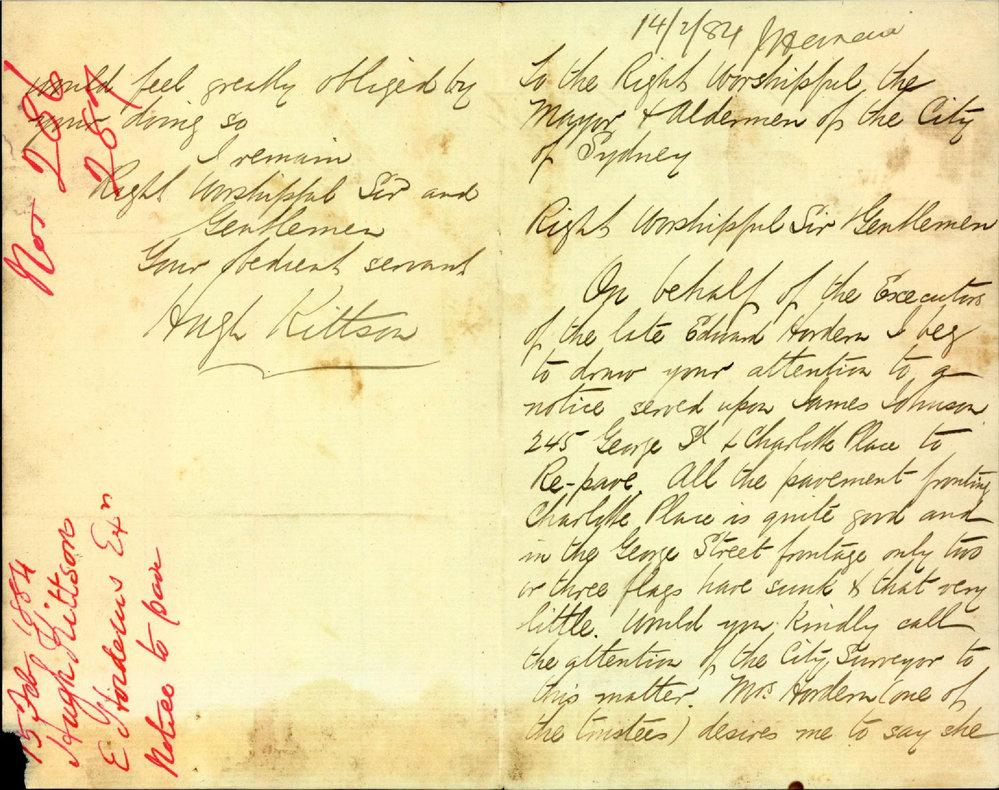 14/2/84
To the Right Worshipful the
Mayor & Aldermen of the City
of Sydney
Right Worshipful Sir & Gentlemen
On behalf of the Executors
of the late Edward Hordern I beg
to draw your attention to a
notice served upon James Johnson
245 George St & Charlotte Place to
Re-pave. All the pavement fronting
Charlotte Place is quite good and
in the George Street frontage only two
or three flags have sunk & that very
little. Would you kindly call
the attention of the City Surveyor to
this matter. Mrs Hordern (one of
the trustees) desires me to say she
would feel greatly obliged by
your doing so
I remain
Right Worshipful Sir and
Gentlemen
Your obedient servant
Hugh Kittson
Nos 286
287
15 Feb 1884
Hugh Kittson
E Horderns Exn
Notice to pave